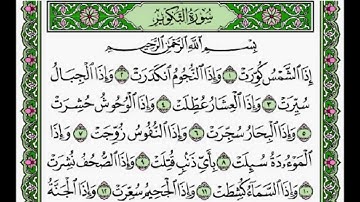 سُورَةُ التَّكْوِيرِ
بِسْمِ اللَّهِ الرَّحْمَٰنِ الرَّحِيمِ
إِذَا الشَّمْسُ كُوِّرَتْ ١ وَإِذَا النُّجُومُ انكَدَرَتْ ٢ وَإِذَا الْجِبَالُ
سُيِّرَتْ ٣ وَإِذَا الْعِشَارُ عُطِّلَتْ ٤ وَإِذَا الْوُحُوشُ حُشِرَتْ
٥ وَإِذَا الْبِحَارُ سُجِّرَتْ ٦ وَإِذَا النُّفُوسُ زُوِّجَتْ ٧ وَإِذَا
الْمَوْءُۥدَةُ سُئِلَتْ ٨ بِأَيِّ ذَنۢبٍ قُتِلَتْ ٩ وَإِذَا الصُّحُفُ نُشِرَتْ
١٠ وَإِذَا السَّمَاءُ كُشِطَتْ ١١ وَإِذَا الْجَحِيمُ سُعِّرَتْ ١٢ وَإِذَا الْجَنَّةُ